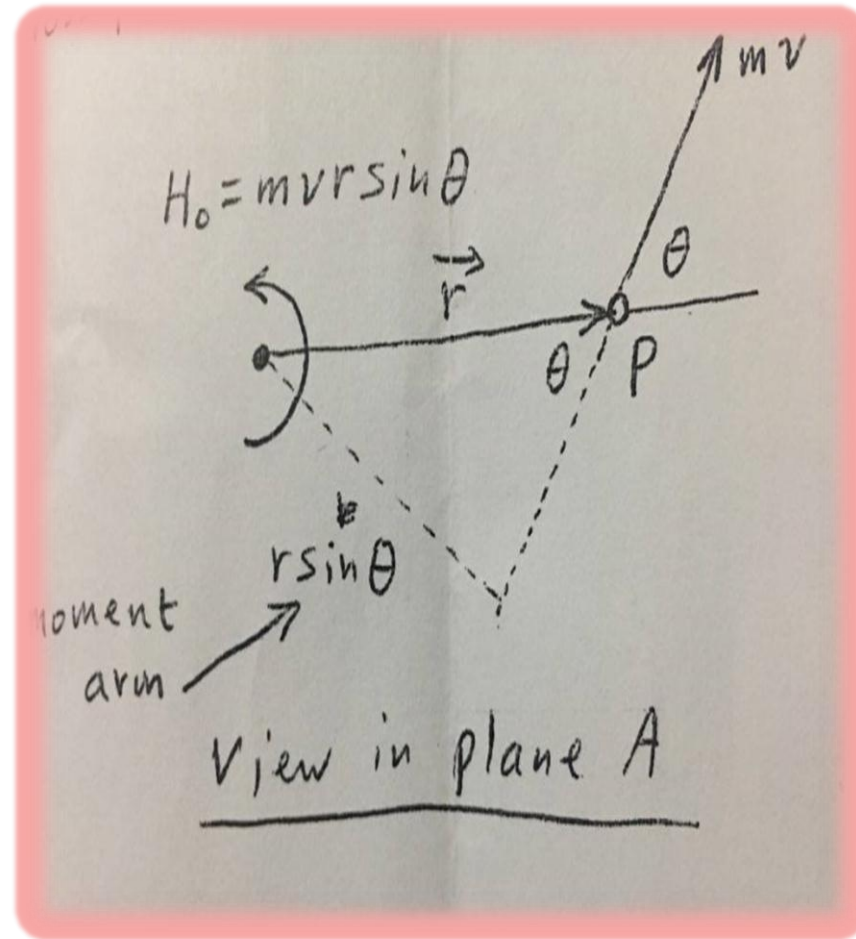 mv
H₀ = mvr sin θ
θ
r⃗
θ P
r sin θ
moment
arm
View in plane A